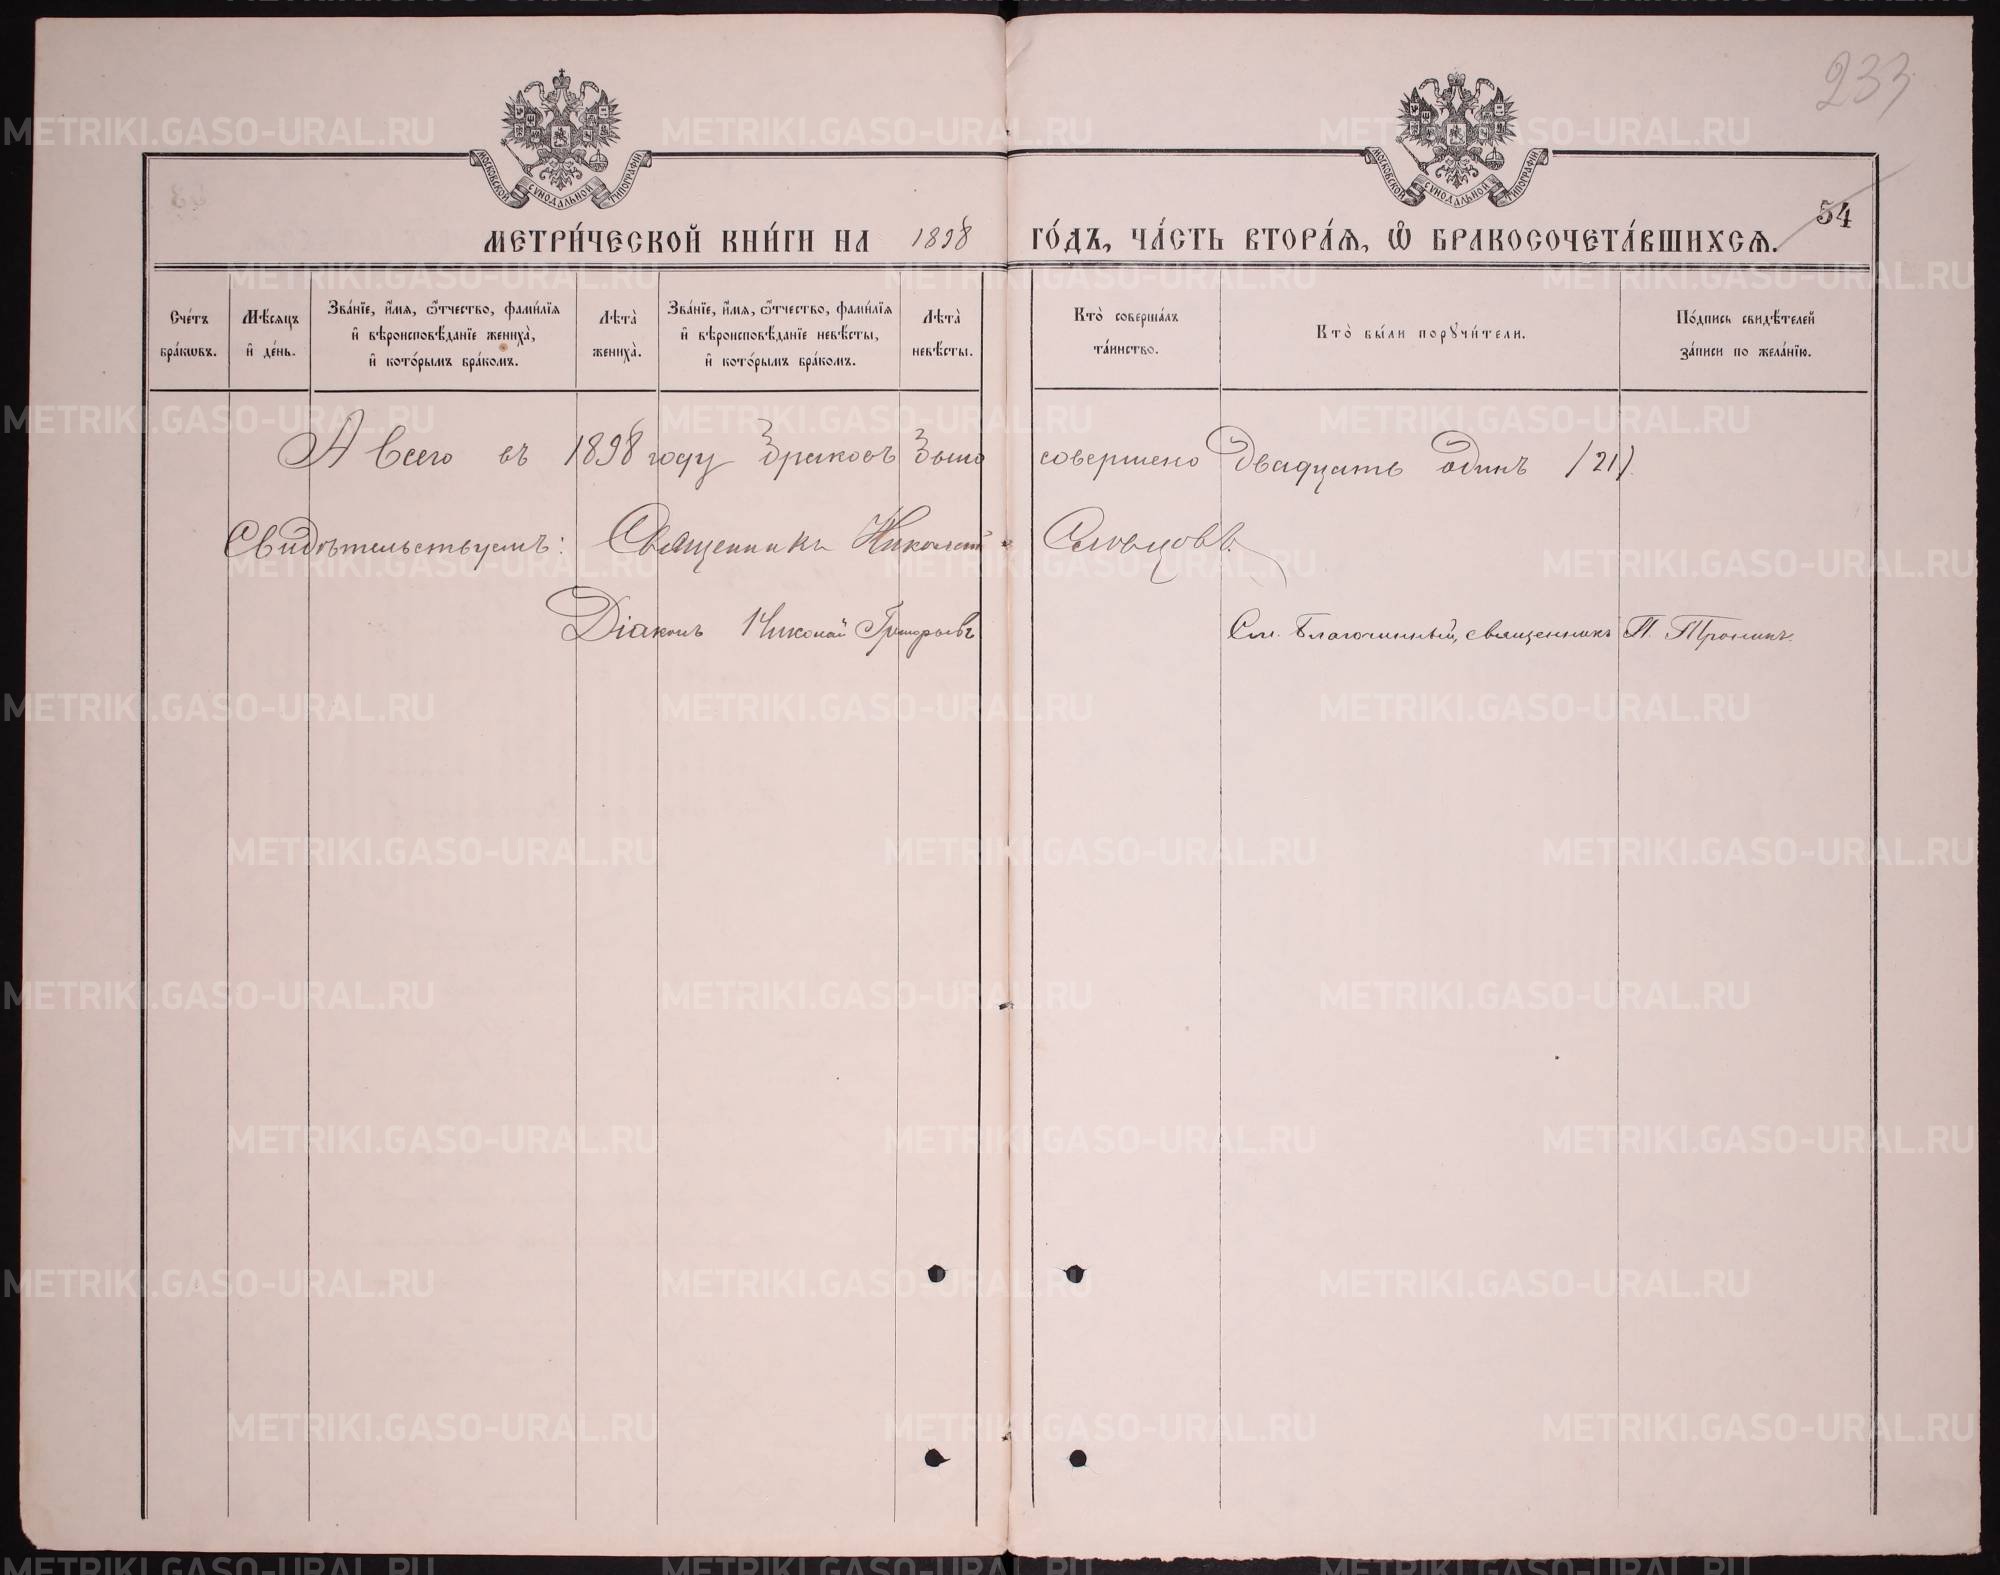 233
МОСКОВСКОЙ СΥНОДАЛЬНОЙ ТИПОГРАФІИ
МОСКОВСКОЙ СΥНОДАЛЬНОЙ ТИПОГРАФІИ
54
МЕТРИ́ЧЕСКОЙ КНИ́ГИ НА 1898 ГО́ДЪ, ЧА́СТЬ ВТОРА́Ѧ, Ѡ҆ БРАКОСОЧЕТА́ВШИХСѦ.
Сче́тъ бра́кωвъ.
Мѣ́сѧцъ и҆ де́нь.
Зва́нїе, и҆́мѧ, ѻ҆́тчество, фами́лїѧ и҆ вѣроисповѣ́данїе жениха̀, и҆ кото́рымъ бра́комъ.
Лѣ́та̀ жениха̀.
Зва́нїе, и҆́мѧ, ѻ҆́тчество, фами́лїѧ и҆ вѣроисповѣ́данїе невѣ́сты, и҆ кото́рымъ бра́комъ.
Лѣ́та̀ невѣ́сты.
Кто̀ соверша́лъ та́инство.
Кто̀ бы́ли порꙋчи́тели.
По́дпись свидѣ́телей за́писи по жела́нїю.
А всего въ 1898 году браковъ было совершено двадцать одинъ /21/.
Свидѣтельствуемъ: Священникъ Николай Словцовъ.
Діаконъ Николай Григорьевъ
См. Благочинный, священникъ П. Пронинъ.
METRIKI.GASO-URAL.RU